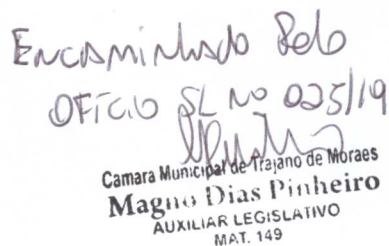 Encaminhado Pelo
OFÍCIO SL Nº 025/19
Camara Municipal de Trajano de Moraes
Magno Dias Pinheiro
AUXILIAR LEGISLATIVO
MAT. 149